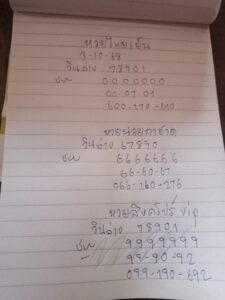 หวยไทยเย็น
3-10-68
วินล่าง 78901
ชน 0000000
00-07-01
600-170-610
หวยนอยกาชาด
วินล่าง 67890
ชน 6666666
66-60-67
066-160-276
หวยสิงคโปร์ vip
วินล่าง 78901
ชน 9999999
99-90-92
099-190-692